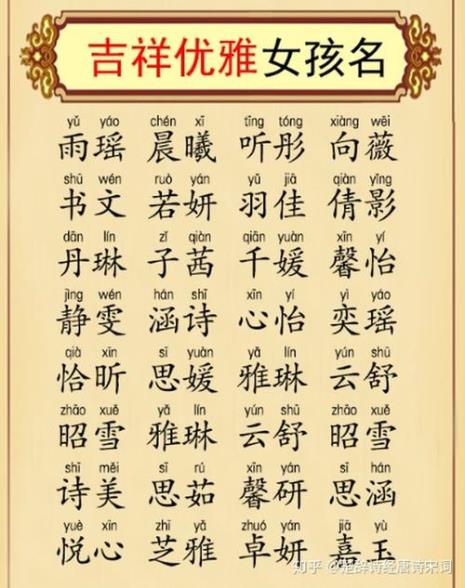 吉祥优雅女孩名
yǔ yáo chén xī tīng tóng xiàng wēi
雨瑶 晨曦 听彤 向薇
shū wén ruò yán yǔ jiā qiàn yǐng
书文 若妍 羽佳 倩影
dān lín zǐ qiàn qiān yuàn xīn yí
丹琳 子茜 千媛 馨怡
jìng wén hán shī xīn yí yì yáo
静雯 涵诗 心怡 奕瑶
qià xīn sī yuàn yǎ lín yún shū
恰昕 思媛 雅琳 云舒
zhāo xuě yǎ lín yún shū zhāo xuě
昭雪 雅琳 云舒 昭雪
shī měi sī rú xīn yán sī hán
诗美 思茹 馨研 思涵
yuè xīn zhī yǎ zhuó yán jiā yù
悦心 芝雅 卓妍 嘉玉
知乎 @楚辞诗经唐诗宋词